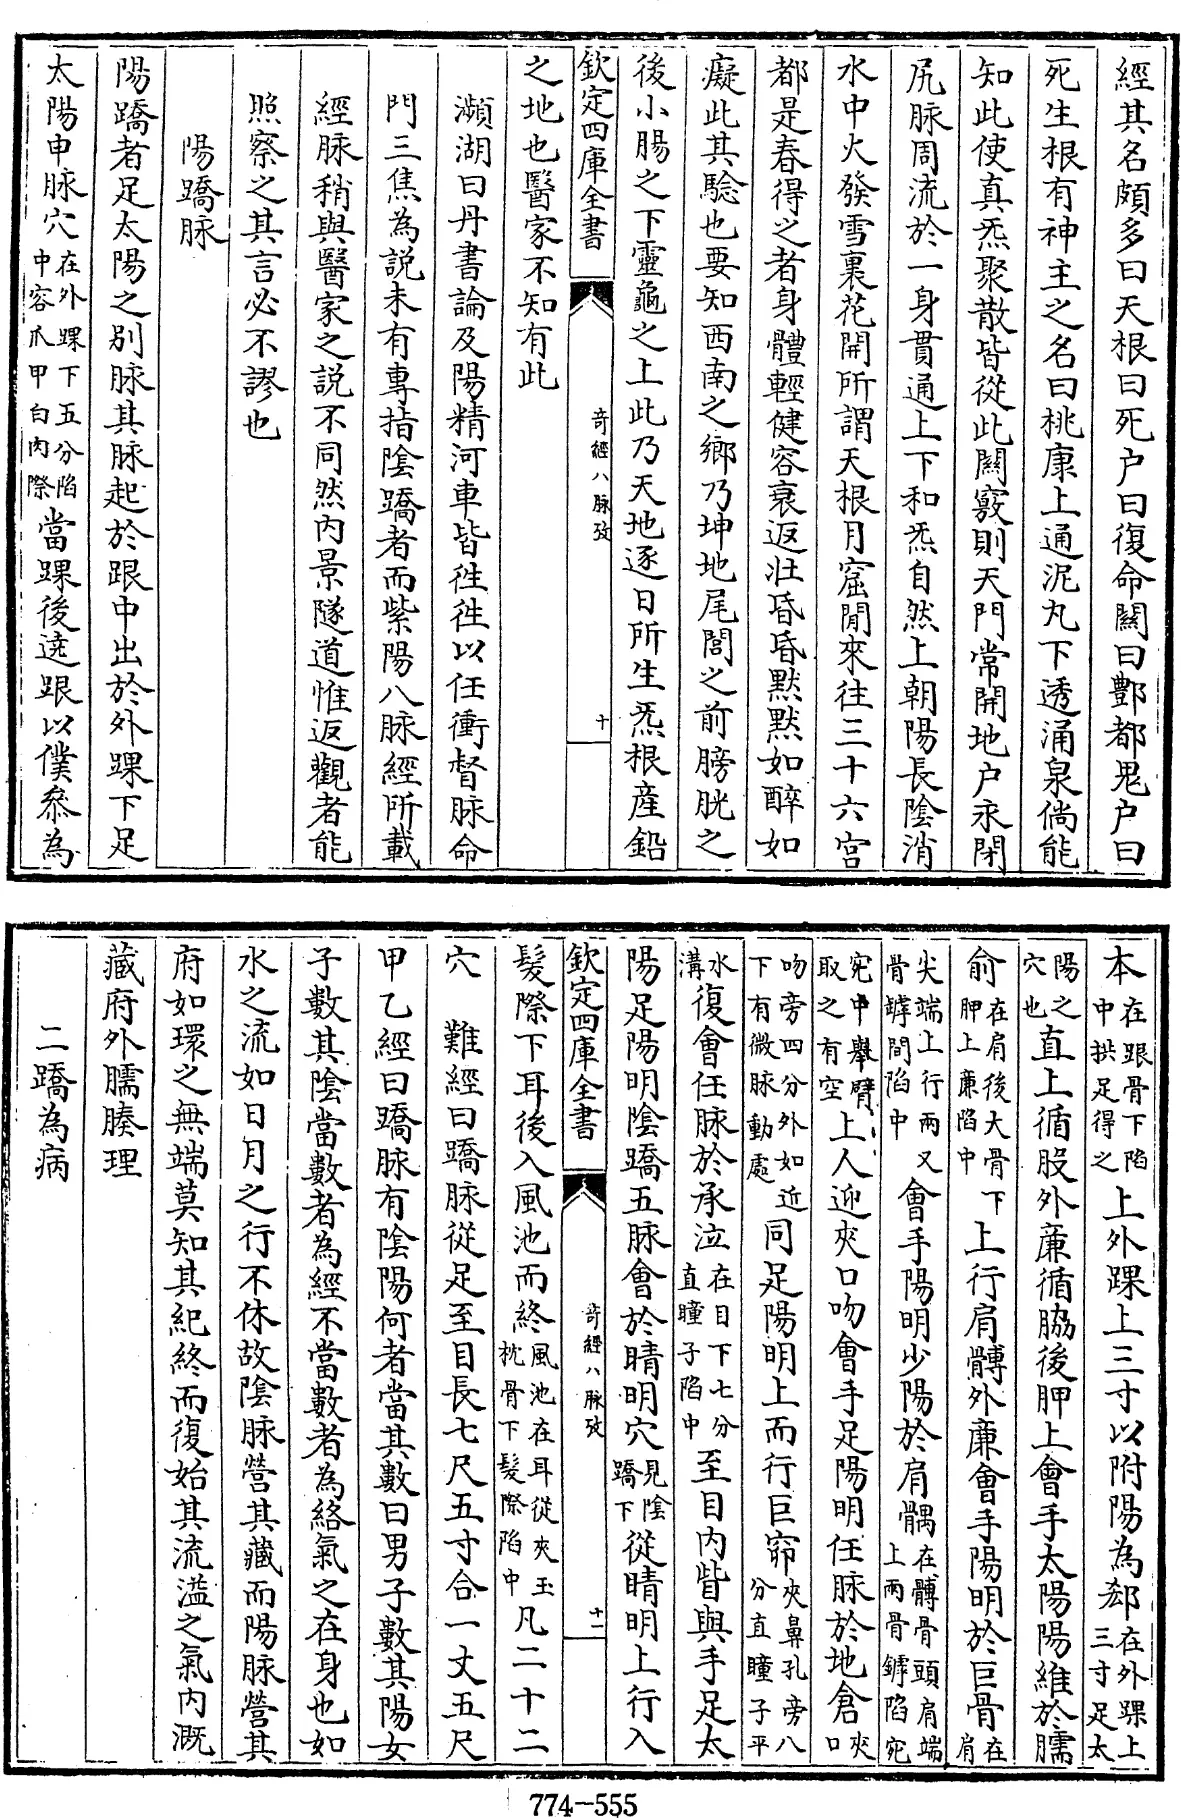 經其名頗多曰天根曰死户曰復命關曰酆都鬼户曰
死生根有神主之名曰桃康上通泥丸下透涌泉倘能
知此使真炁聚散皆從此關竅則天門常開地户永閉
尻脉周流於一身貫通上下和炁自然上朝陽長陰消
水中火發雪裏花開所謂天根月窟閒來往三十六宮
都是春得之者身體輕健容衰返壯昏昏默默如醉如
癡此其驗也要知西南之鄉乃坤地尾閭之前膀胱之
後小腸之下靈龜之上此乃天地逐日所生炁根產鉛
欽定四庫全書 竒經八脉攷 十
之地也醫家不知有此
瀕湖曰丹書論及陽精河車皆徃徃以任衝督脉命
門三焦為説未有專指陰蹻者而紫陽八脉經所載
經脉稍與醫家之説不同然内景隧道惟返觀者能
照察之其言必不謬也
陽蹻脉
陽蹻者足太陽之别脉其脉起於跟中出於外踝下足
太陽申脉穴在外踝下五分陷中容爪甲白肉際當踝後遶跟以僕叅為
本在跟骨下陷中拱足得之上外踝上三寸以附陽為郄在外踝上三寸足太
陽之穴也直上循股外廉循脇後胛上會手太陽陽維於臑
俞在肩後大骨下胛上廉陷中上行肩髆外廉會手陽明於巨骨在肩
尖端上行兩叉骨罅間陷中會手陽明少陽於肩髃在髆骨頭肩端上兩骨罅陷宛
宛中舉臂取之有空上人迎夾口吻會手足陽明任脉於地倉夾口
吻旁四分外如近下有微脉動處同足陽明上而行巨窌夾鼻孔旁八分直瞳子平
水溝復會任脉於承泣在目下七分直瞳子陷中至目内眥與手足太
陽足陽明陰蹻五脉會於睛明穴見陰蹻下從睛明上行入
欽定四庫全書 竒經八脉攷 十一
髮際下耳後入風池而終風池在耳從夾玉枕骨下髮際陷中凡二十二
穴 難經曰蹻脉從足至目長七尺五寸合一丈五尺
甲乙經曰蹻脉有陰陽何者當其數曰男子數其陽女
子數其陰當數者為經不當數者為絡氣之在身也如
水之流如日月之行不休故陰脉營其藏而陽脉營其
府如環之無端莫知其紀終而復始其流溢之氣内溉
藏府外臑腠理
二蹻為病
774-555